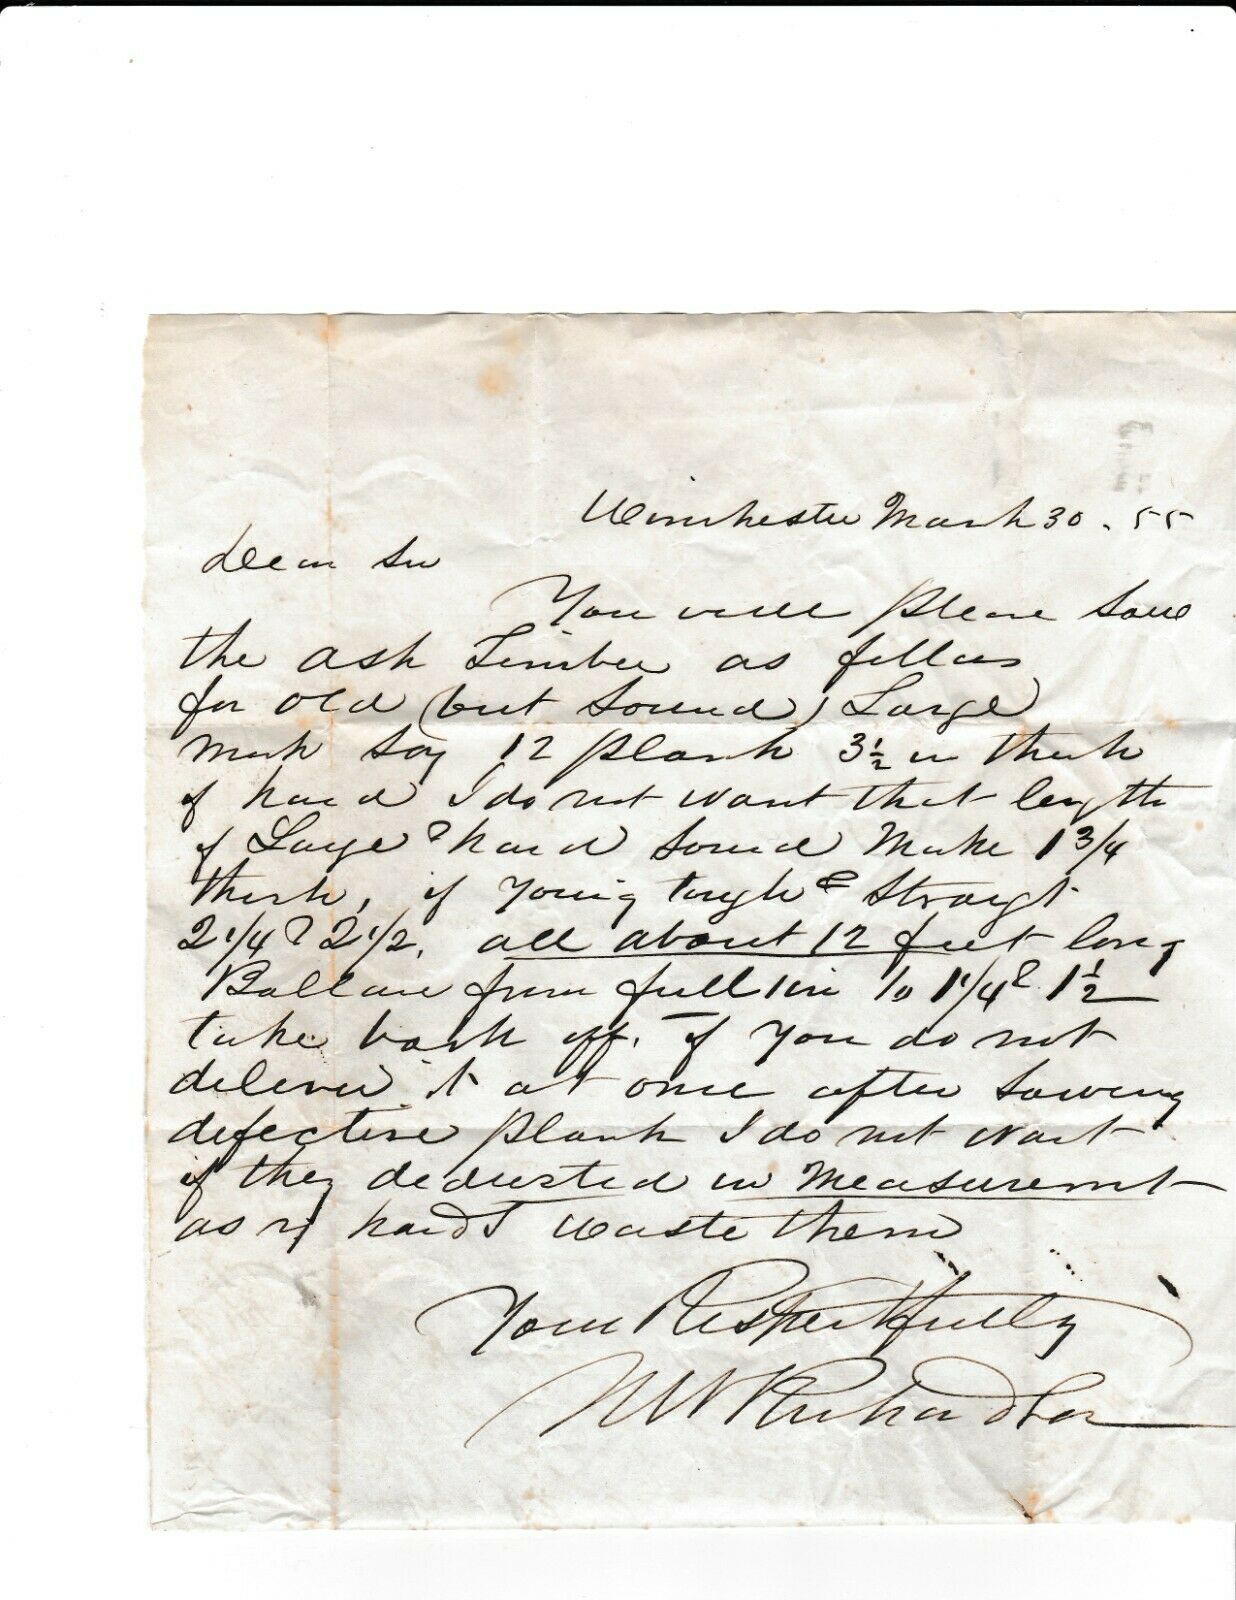 Winchester March 30. 55
Dear Sir
You will please Saw
the ash Timber as follows
for old (but Sound) Large
make Say 12 plank 3 1/2 in thick
if hard I do not want that length
if Large & hard Sound Make 1 3/4
thick, if Young tough & Straight
2 1/4 & 2 1/2. all about 12 feet long
Ballance from full 1 in to 1 1/4 & 1 1/2
take bark off. if You do not
deliver it at once after Sawing
defective plank I do not want
if they deducted in Measurement
as if hard I waste them
Your Respectfully
Richardson